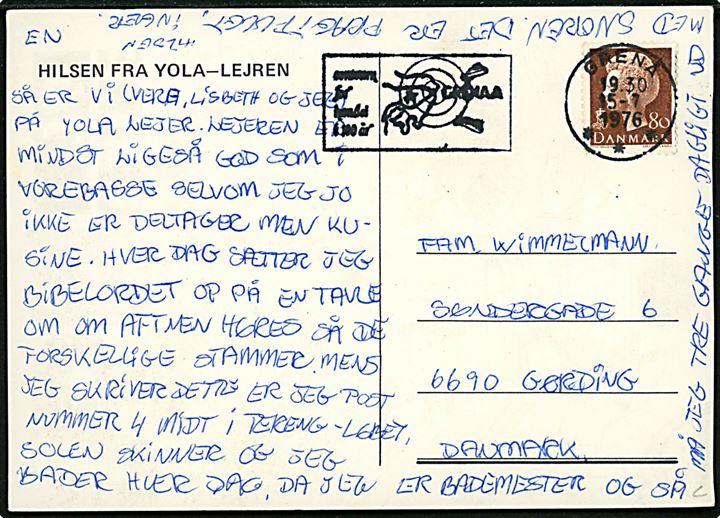 HILSEN FRA YOLA–LEJREN
SÅ ER VI (VERA, LISBETH OG JEG)
PÅ YOLA LEJER. LEJEREN ER
MINDST LIGESÅ GOD SOM I
VOREBASSE SELVOM JEG JO
IKKE ER DELTAGER MEN KU-
SINE. HVER DAG SÆTTER JEG
BIBELORDET OP PÅ EN TAVLE
OM OM AFTNEN HØRES SÅ DE
FORSKELLIGE STAMMER. MENS
JEG SKRIVER DETTE ER JEG POST
NUMMER 4 MIDT I TERENG-LØBET.
SOLEN SKINNER OG JEG
BADER HVER DAG, DA JEG ER BADEMESTER OG SÅ
MÅ JEG TRE GANGE DAGLIGT UD
MED SNOREN. DET ER PRAGTFULGT.
EN
HILSEN
INGER.
GRENÅ
19.30
15-7
1976
80
DANMARK
FAM. WIMMELMANN.
SØNDERGADE 6
6690 GØRDING
DANMARK.